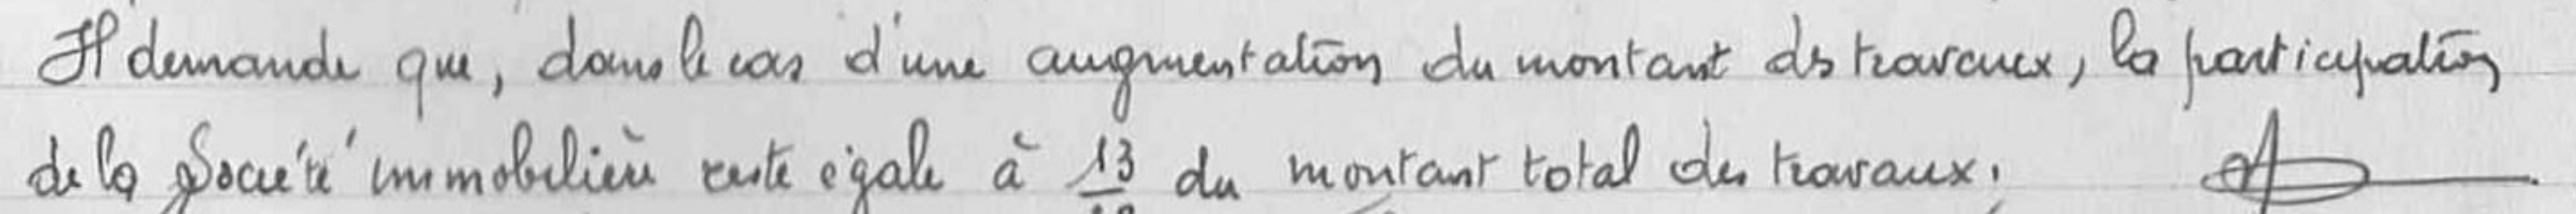 Il demande que, dans le cas d'une augmentation du montant des travaux, la participation
de la Société immobilière reste égale à 13 du montant total des travaux.